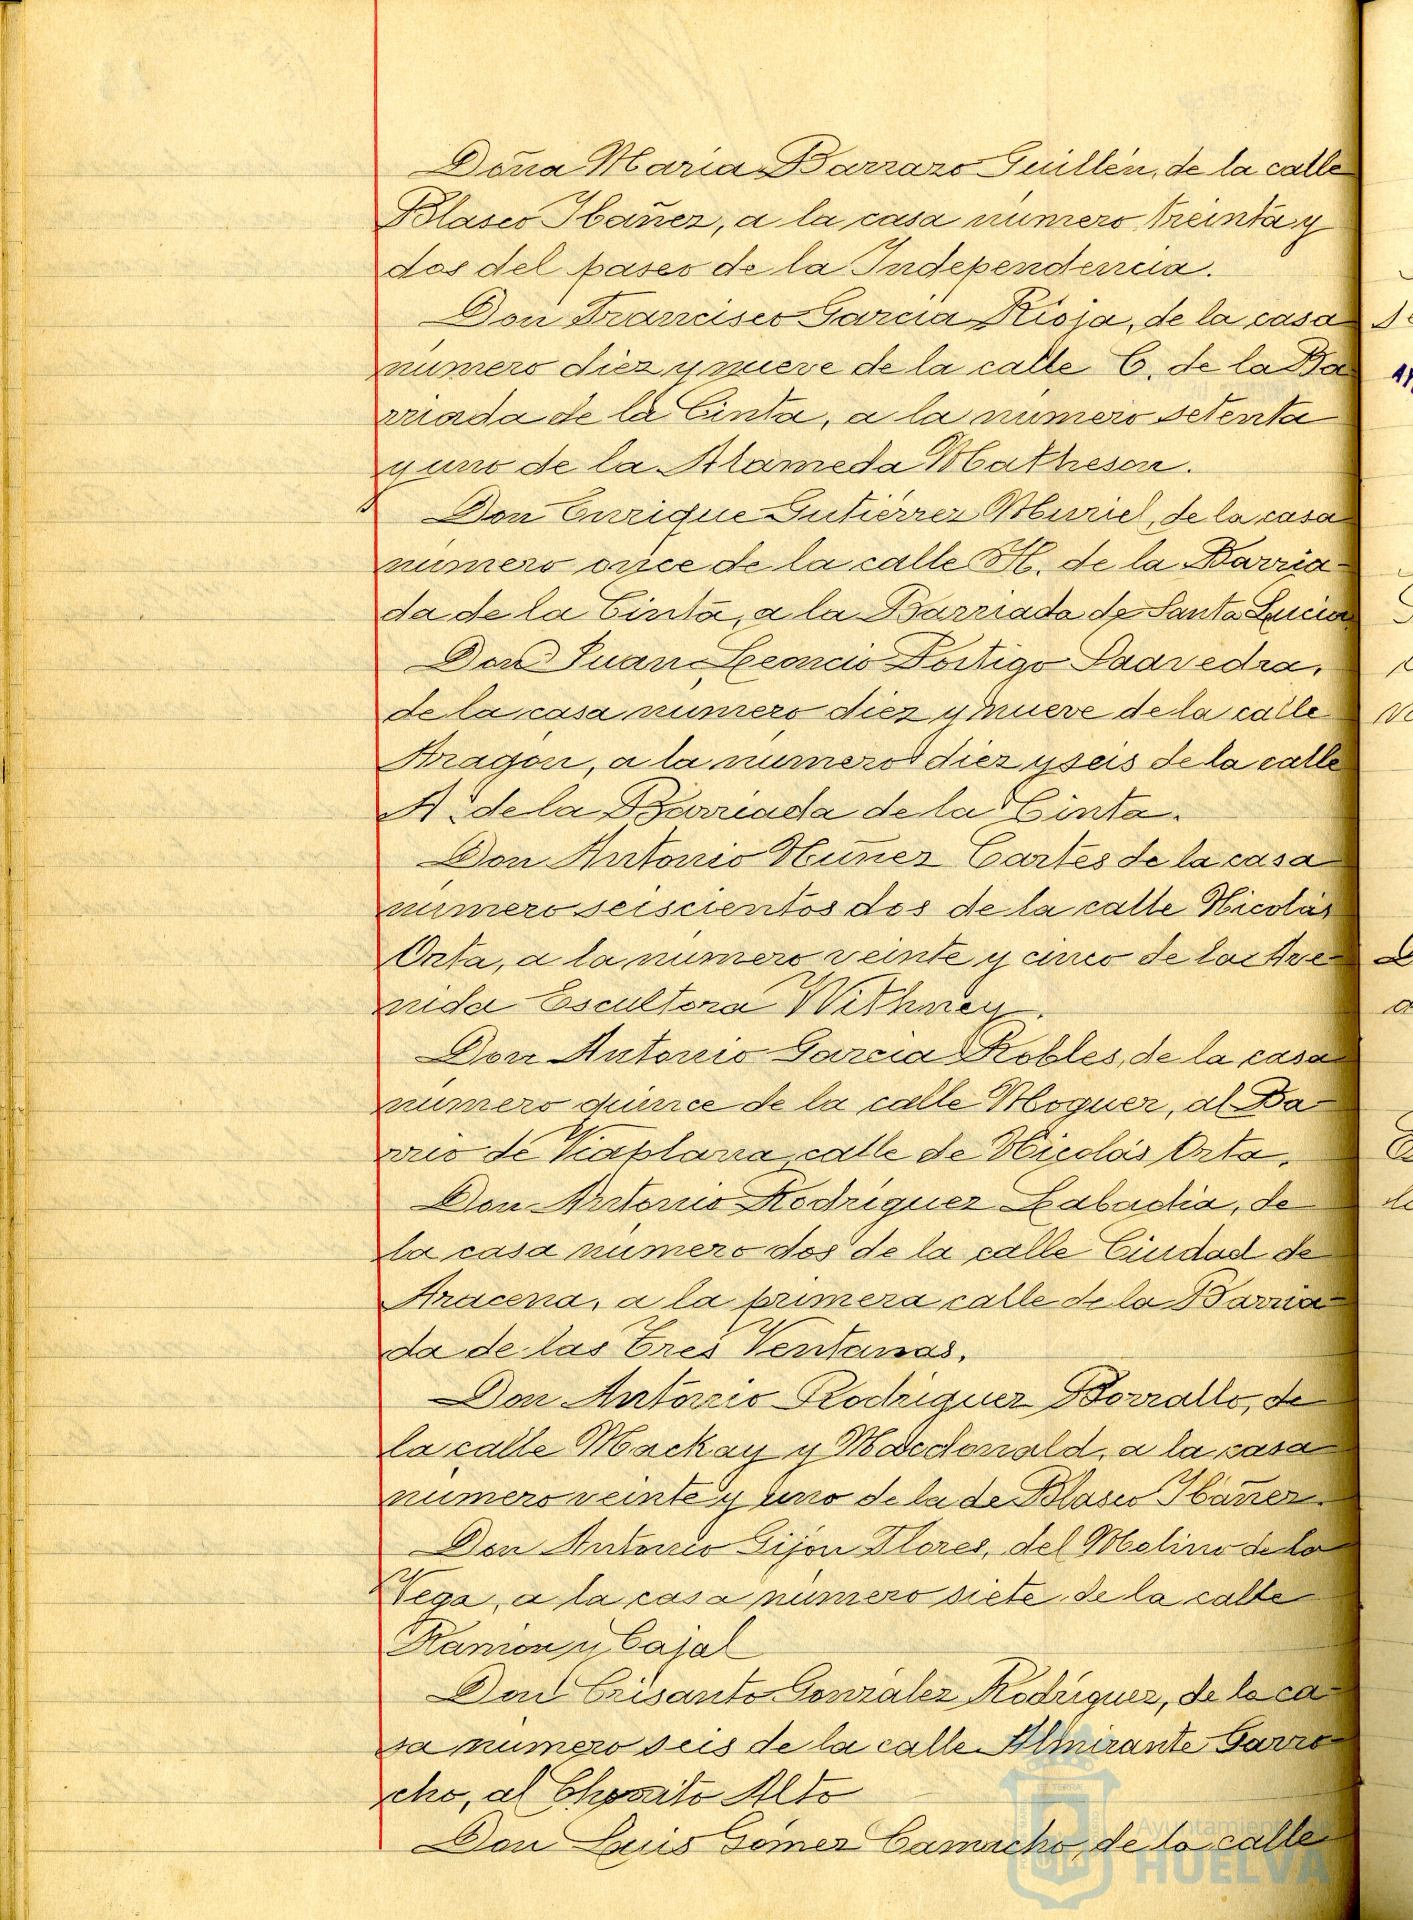 Doña María Barrazo Guillén, de la calle
Blasco Ibañez, a la casa número treinta y
dos del paseo de la Independencia.
Don Francisco García Rioja, de la casa
número diez y nueve de la calle C. de la Ba
rriada de la Cinta, a la número setenta
y uno de la Alameda Matheson.
Don Enrique Gutiérrez Muriel, de la casa
número once de la calle H. de la Barria-
da de la Cinta, a la Barriada de Santa Lucia
Don Juan Leoncio Postigo Saavedra,
de la casa número diez y nueve de la calle
Aragón, a la número diez y seis de la calle
A. de la Barriada de la Cinta.
Don Antonio Núñez Cartes de la casa
número seiscientos dos de la calle Nicolás
Orta, a la número veinte y cinco de la Ave-
nida Escultora Withney.
Don Antonio García Robles, de la casa
número quince de la calle Moguer, al Ba-
rrio de Viaplana, calle de Nicolás Orta.
Don Antonio Rodríguez Labadia, de
la casa número dos de la calle Ciudad de
Aracena, a la primera calle de la Barria-
da de las Tres Ventanas.
Don Antonio Rodríguez Borrallo, de
la calle Mackay y Macdonald, a la casa
número veinte y uno de la de Blasco Ibáñez.
Don Antonio Gijón Flores, del Molino de la
Vega, a la casa número siete de la calle
Ramon y Cajal
Don Crisanto González Rodríguez, de la ca-
sa número seis de la calle Almirante Garro-
cho, al Chorrito Alto
Don Luis Gómez Camacho, de la calle
Ayuntamiento de
HUELVA